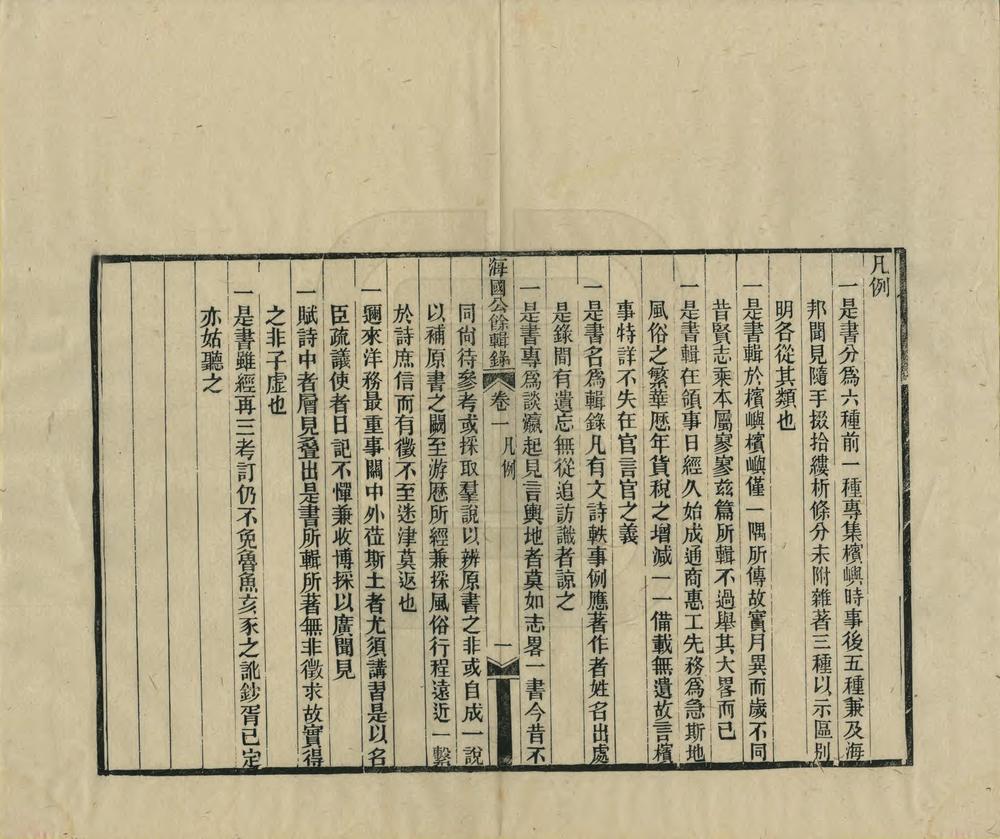 凡例
一是書分爲六種前一種專集檳嶼時事後五種兼及海
邦聞見隨手掇拾縷析條分末附雜著三種以示區別
明各從其類也
一是書輯於檳嶼檳嶼僅一隅所傳故實月異而歲不同
昔賢志乘本屬寥寥茲篇所輯不過舉其大畧而已
一是書輯在領事日經久始成通商惠工先務爲急斯地
風俗之繁華歷年貨稅之增減一一備載無遺故言檳
事特詳不失在官言官之義
一是書名爲輯錄凡有文詩軼事例應著作者姓名出處
是錄間有遺忘無從追訪識者諒之
一是書專爲談瀛起見言輿地者莫如志畧一書今昔不
海國公餘輯錄 卷一 凡例 一
同尙待參考或採取羣說以辨原書之非或自成一說
以補原書之闕至游歷所經兼採風俗行程遠近一繫
於詩庶信而有徵不至迷津莫返也
一邇來洋務最重事關中外蒞斯土者尤須講習是以名
臣疏議使者日記不憚兼收博採以廣聞見
一賦詩中者層見疊出是書所輯所著無非徵求故實得
之非子虛也
一是書雖經再三考訂仍不免魯魚亥豕之訛鈔胥已定
亦姑聽之